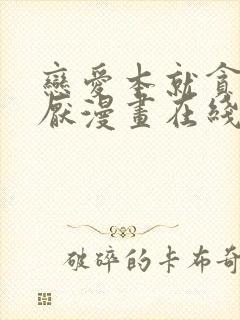 戀愛本就貪
厭漫畫在綫
破碎的卡布奇